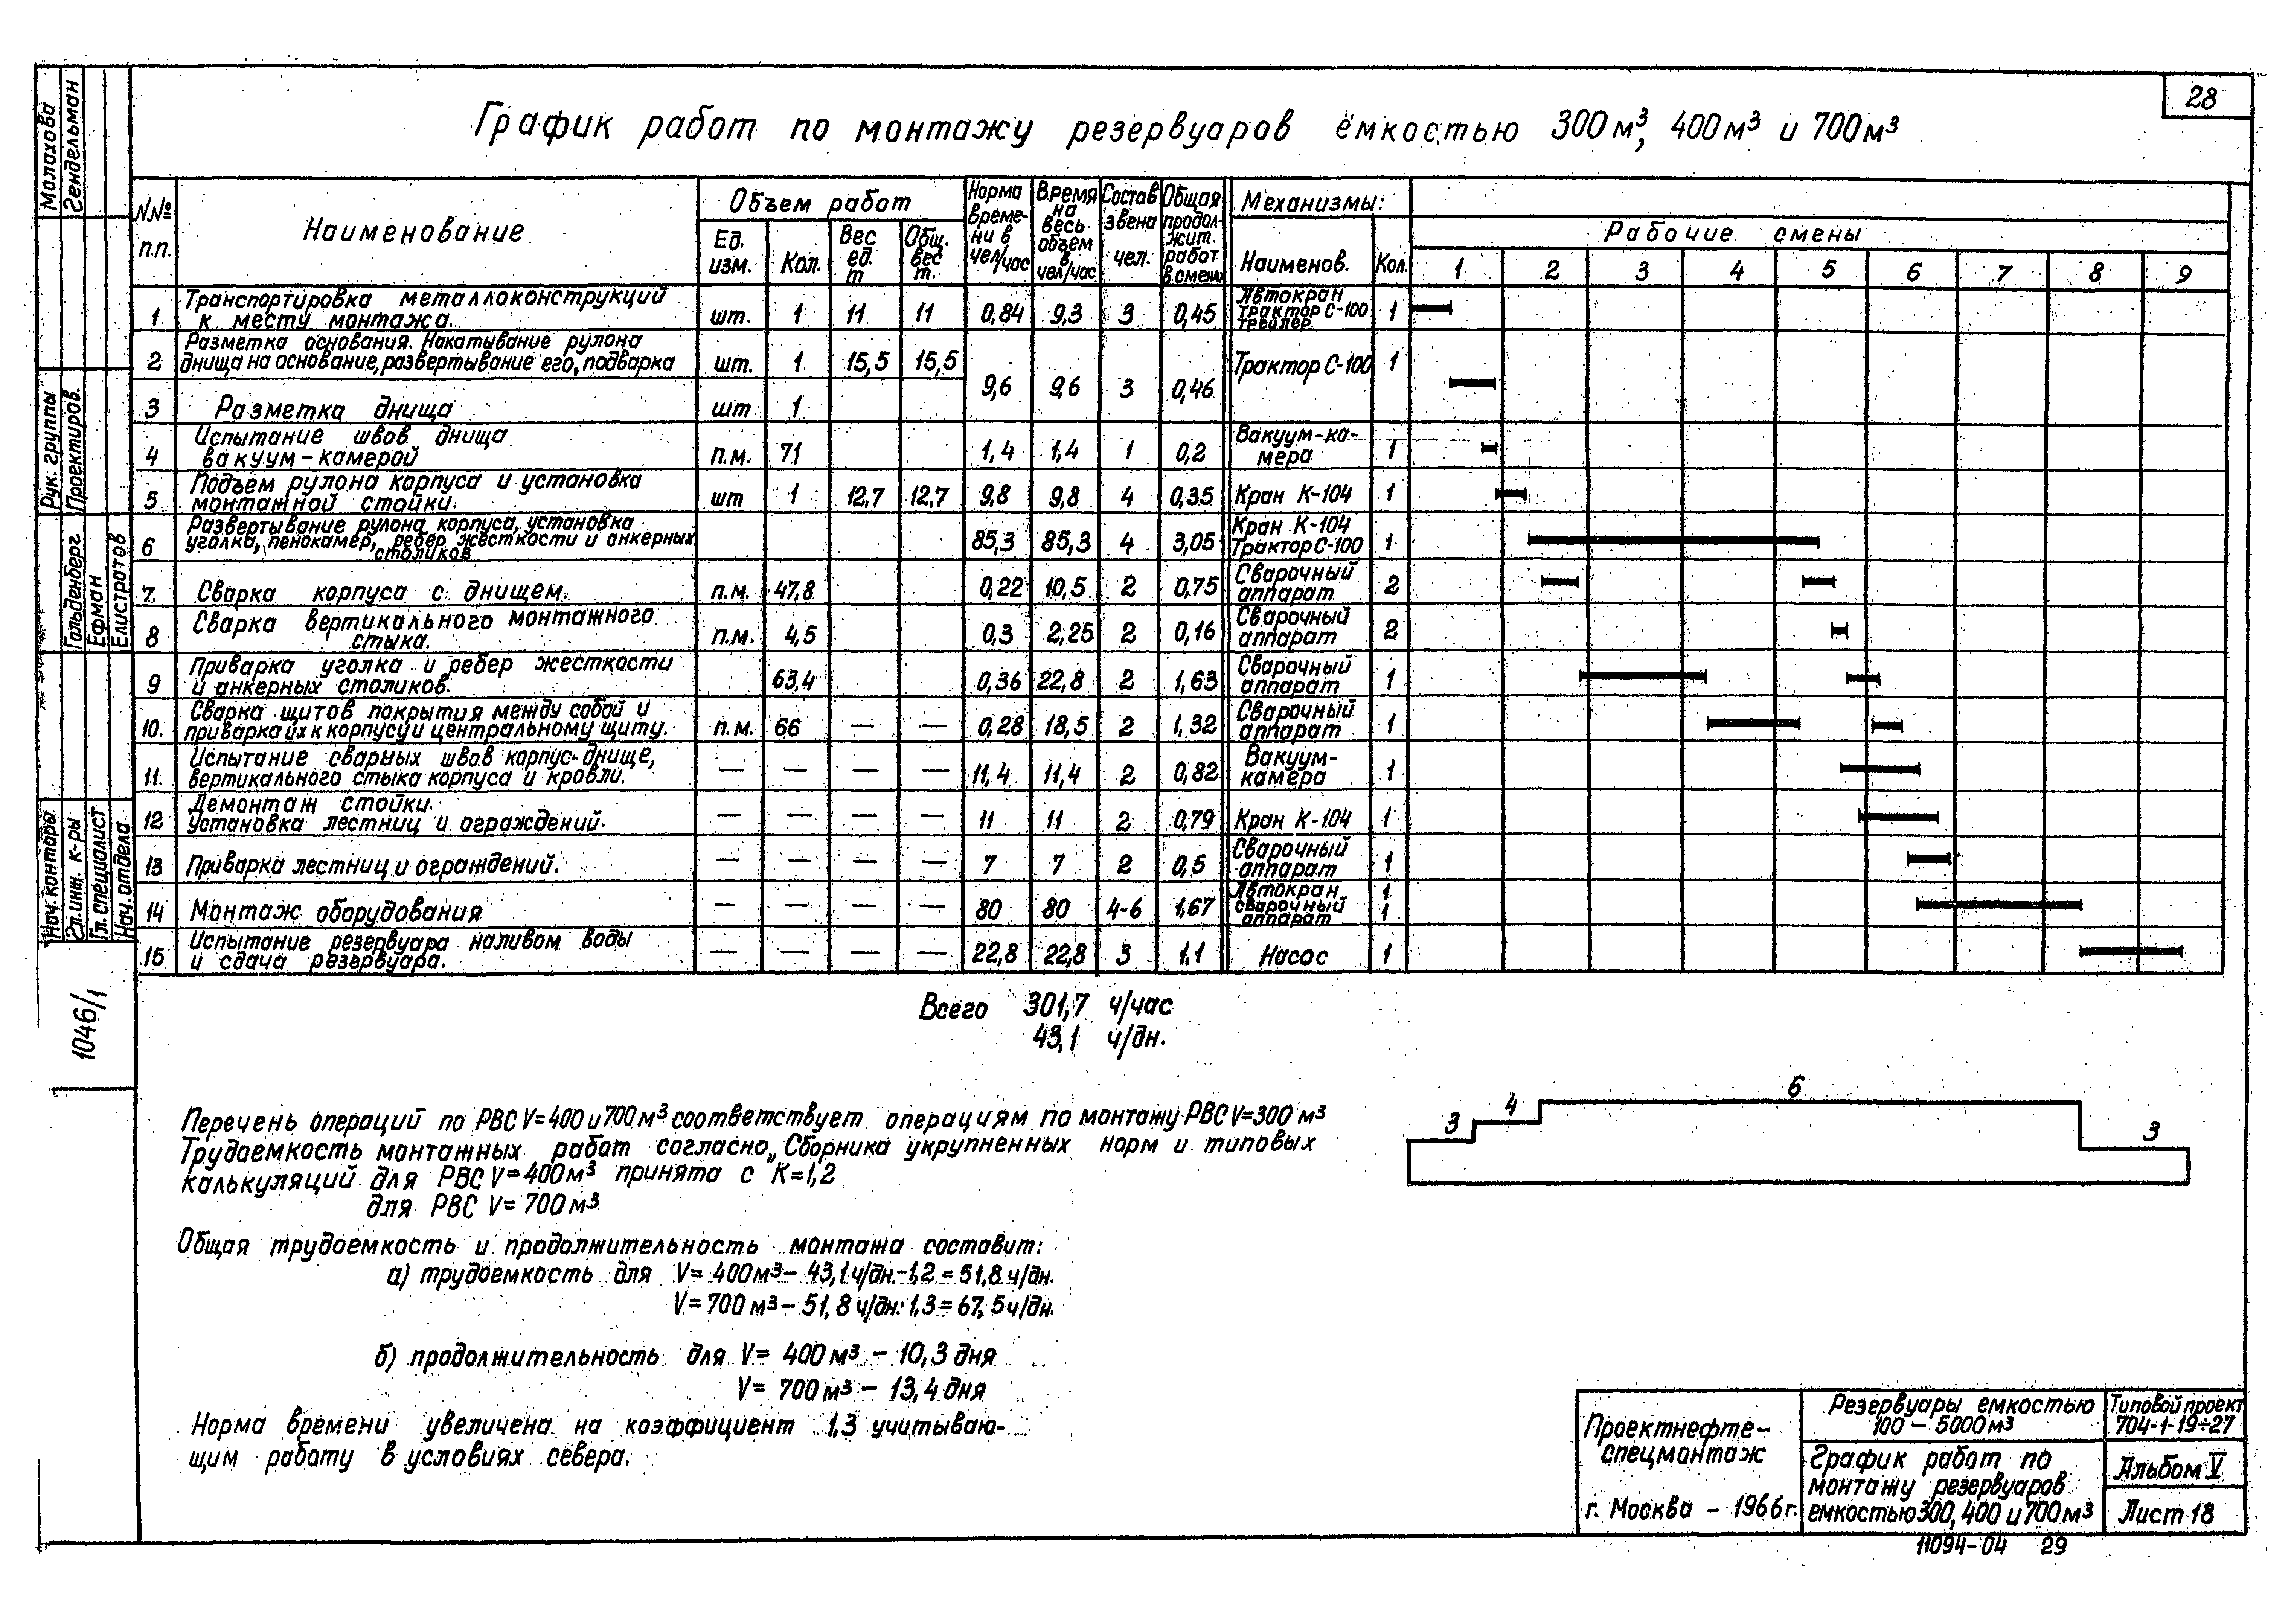 28
График работ по монтажу резервуаров ёмкостью 300м³, 400м³ и 700м³
N.№ п.п. Наименование Объем работ Норма времени в чел/час Время на весь объем в чел/час Состав звена чел. Общая продолжит. работ в смен. Механизмы: Рабочие смены
Ед. изм. Кол. Вес ед. т Общ. вес т. Наименов. Кол. 1 2 3 4 5 6 7 8 9
1 Транспортировка металлоконструкций
к месту монтажа. шт. 1 11 11 0,84 9,3 3 0,45 Автокран трактор С-100 трейлер 1
2 Разметка основания. Накатывание рулона
днища на основание, развертывание его, подварка шт. 1 15,5 15,5 9,6 9,6 3 0,46 Трактор С-100 1
3 Разметка днища шт 1
4 Испытание швов днища
вакуум-камерой п.м. 71 1,4 1,4 1 0,2 Вакуум-камера 1
5 Подъем рулона корпуса и установка
монтажной стойки. шт 1 12,7 12,7 9,8 9,8 4 0,35 Кран К-104 1
6 Развертывание рулона корпуса, установка
уголка, пенокамер, ребер жесткости и анкерных
столиков 85,3 85,3 4 3,05 Кран К-104 Трактор С-100 1
7. Сварка корпуса с днищем. п.м. 47,8 0,22 10,5 2 0,75 Сварочный аппарат 2
8 Сварка вертикального монтажного
стыка. п.м. 4,5 0,3 2,25 2 0,16 Сварочный аппарат 2
9 Приварка уголка и ребер жесткости
и анкерных столиков. 63,4 0,36 22,8 2 1,63 Сварочный аппарат 1
10. Сварка щитов покрытия между собой и
приварка их к корпусу и центральному щиту. п.м. 66 — — 0,28 18,5 2 1,32 Сварочный аппарат 1
11. Испытание сварных швов корпус-днище,
вертикального стыка корпуса и кровли. — — — — 11,4 11,4 2 0,82 Вакуум-камера 1
12 Демонтаж стойки.
Установка лестниц и ограждений. — — — — 11 11 2 0,79 Кран К-104 1
13 Приварка лестниц и ограждений. — — — — 7 7 2 0,5 Сварочный аппарат 1
14 Монтаж оборудования — — — — 80 80 4-6 1,67 Автокран 1 сварочный аппарат 1
15 Испытание резервуара наливом воды
и сдача резервуара. — — — — 22,8 22,8 3 1,1 Насос 1
Всего 301,7 ч/час
43,1 ч/дн.
3 4 6 3
Перечень операций по РВС V=400 и 700м³ соответствует операциям по монтажу РВС V=300 м³
Трудоемкость монтажных работ согласно „Сборника укрупненных норм и типовых
калькуляций для РВС V=400м³ принята с К=1,2
для РВС V=700м³
Общая трудоемкость и продолжительность монтажа составит:
а) трудоемкость для V= 400м³ – 43,1ч/дн.-1,2 = 51,8 ч/дн.
V=700м³ – 51,8 ч/дн.·1,3=67,5ч/дн.
б) продолжительность для V= 400м³ – 10,3 дня
V= 700м³ – 13,4 дня
Норма времени увеличена на коэффициент 1,3 учитываю-
щим работу в условиях севера.
Проектнефте-
спецмонтаж
г. Москва – 1966г.
Резервуары емкостью
100 – 5000м³
График работ по
монтажу резервуаров
емкостью 300, 400 и 700м³
Типовой проект
704-1-19÷27
Альбом V
Лист 18
11094-04 29
Малахова
Гендельман
Рук. группы
Проектиров.
Гольденберг
Ефман
Елистратов
Нач. конторы
Гл. инж. к-ры
Гл. специалист
Нач. отдела
1046/1